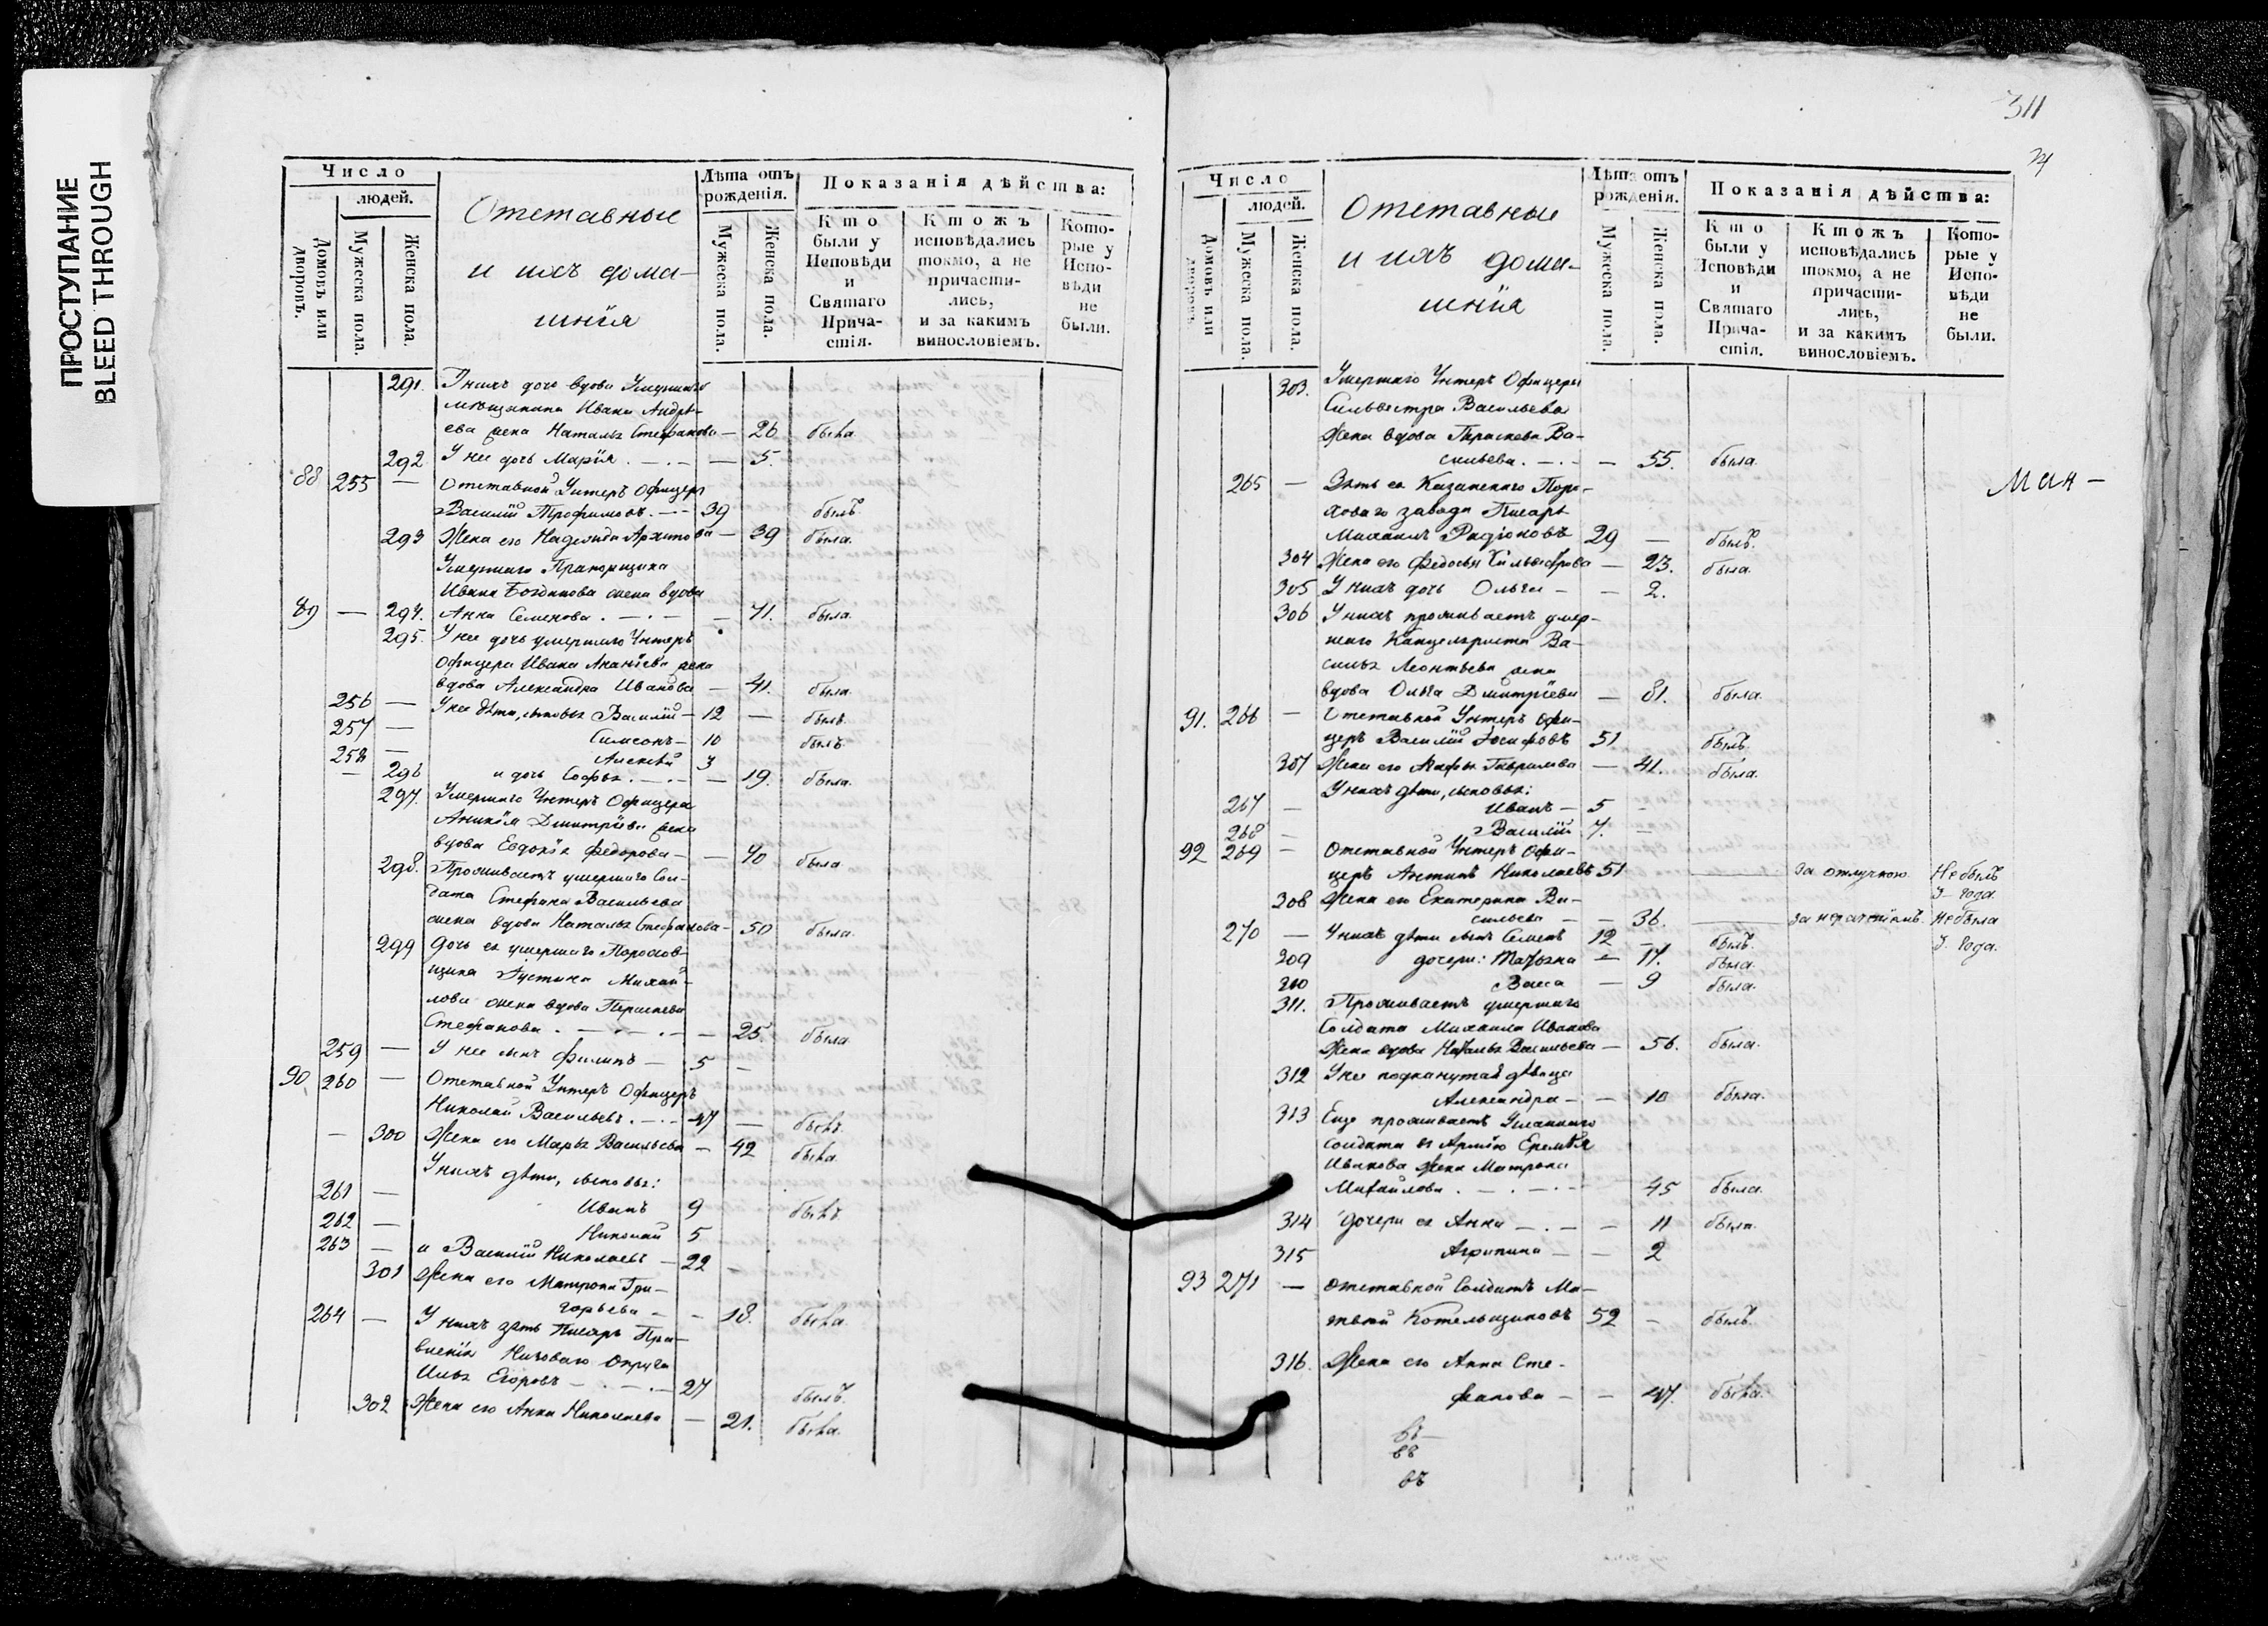 ПРОСТУПАНИЕ
BLEED THROUGH
Число
людей.
Домовъ или дворовъ.
Мужеска пола.
Женска пола.
Отставные
и ихъ дома-
шнія
Лѣта отъ рожденія.
Мужеска пола.
Женска пола.
Показанія дѣйства:
Кто были у Исповѣди и Святаго Прича-стія.
Ктожъ исповѣдались токмо, а не причасти-лись, и за какимъ винословіемъ.
Кото-рые у Испо-вѣди не были.
291. У нихъ дочь вдова Умершаго
мѣщанина Ивана Андрѣ-
ева жена Наталья Стефанова — 26 была.
292 У нее дочь Марія . — . — — 5.
88 255 — Отставной Унтеръ Офицеръ
Василій Трофимовъ. — 39 былъ.
293 Жена его Надежда Архипова — 39 была.
Умершаго Прапорщика
Ивана Богданова жена вдова
89 — 294. Анна Семенова . — . — — 71. была.
295. У нее дочь умершаго Унтеръ
Офицера Ивана Ананіева жена
вдова Александра Иванова — 41. была.
256 — У нее дѣти, сыновья Василій — 12 — былъ.
257 — Симеонъ — 10 былъ.
258 — Алексѣй 3
— 296 и дочь Софья . — . — — 19. была.
297. Умершаго Унтеръ Офицера
Дмитріева жена
вдова Евдокія Федорова — — 70 была
298. Проживаетъ умершаго Сол-
дата Стефана Васильева
жена вдова Наталья Стефанова — 50 была.
299 Дочь ея умершаго Порохов-
щика Устина Михай-
лова жена вдова Параскева
Стефанова . — . — . — — 25. была
259 — У нее сынъ Филипъ — 5 —
90 260 — Отставной Унтеръ Офицеръ
Николай Васильевъ . — . — 47 — былъ.
— 300 Жена его Марья Васильева — 42 была.
У нихъ дѣти, сыновья:
261 — Иванъ 9 былъ.
262 — Николай 5
263 — и Василій Николаевъ — 22 —
301 Жена его Матрона Гри-
горьева — — 18. была.
264 — У нихъ зять Писарь Пра-
вленія Низоваго Округа
Илья Егоровъ — . — . — 27 былъ.
302 Жена его Анна Николаева — 21. была.
311
Число
людей.
Домовъ или дворовъ.
Мужеска пола.
Женска пола.
Отставные
и ихъ дома-
шнія
Лѣта отъ рожденія.
Мужеска пола.
Женска пола.
Показанія дѣйства:
Кто были у Исповѣди и Святаго Прича-стія.
Ктожъ исповѣдались токмо, а не причасти-лись, и за какимъ винословіемъ.
Кото-рые у Испо-вѣди не были.
303. Умершаго Унтеръ Офицера
Сильвестра Васильева
Жена вдова Параскева Ва-
сильева . — . — — 55. была.
265 — Зять ея Казанскаго Поро-
ховаго завода Писарь
Михаилъ Радіоновъ 29 — былъ.
304 Жена его Федосья Сильвестрова — 23. была.
305 У нихъ дочь Ольга — — 2.
306 У нихъ проживаетъ умер-
шаго Канцеляриста Ва-
силья Леонтьева жена
вдова Ольга Дмитріева — 81. была.
91. 266 — Отставной Унтеръ Офи-
церъ Василій Іосифовъ 51 былъ.
307 Жена его Агафья Гаврилова — 41. была.
У нихъ дѣти, сыновья:
267 — Иванъ — 5 —
268 — Василій 7. —
92 269 — Отставной Унтеръ Офи-
церъ Антипъ Николаевъ 51 за отлучкою. Не былъ
3 года.
308 Жена его Екатерина Ва-
сильева — — 36. за нераченіемъ. Не была
3 года.
270 — У нихъ дѣти сынъ Семенъ 12 — былъ.
309 дочери: Татьяна — 17. была.
310 Васса — 9 была.
311. Проживаетъ умершаго
Солдата Михаила Иванова
Жена вдова Наталья Васильева — 56. была.
312 У нее подкинутая дѣвица
Александра — — 10 была.
313 Еще проживаетъ Усланнаго
солдата въ Армію Еремѣя
Иванова Жена Матрона
Михайлова . — . — . — 45 была.
314 Дочери ея Анна — . — — 11 была.
315 Агрипина — — 2
93 271 — Отставной Солдатъ Ма-
твѣй Котельщиковъ 52 — былъ.
316. Жена его Анна Сте-
фанова — — 47. была.